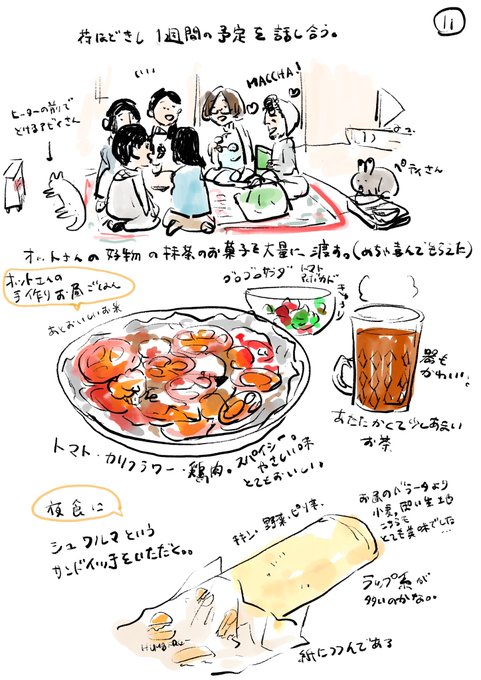 11
荷ほどきし 1週間の予定を話し合う。
MACCHA!
ヒーターの前で
とけるアビイさん
ペティさん
オットさんの好物の抹茶のお菓子を大量に渡す。(めちゃ喜んでもらえた)
オットさんの
手作りお昼ごはん
あとおいしいお米
ゴロゴロサラダ
トマト
きゅうり
器も
かわいい。
あたたかくて少しあまい
お茶
トマト・カリフラワー・鶏肉。スパイシー。
やさしい味
とてもおいしい。
夜食に
シュワルマという
サンドイッチをいただく。。
チキン、野菜、ピクルス、
お昼のパラータより
小麦。固い生地
こちらも
とても美味でした…
ラップ系が
多いのかな。。
紙につつんである